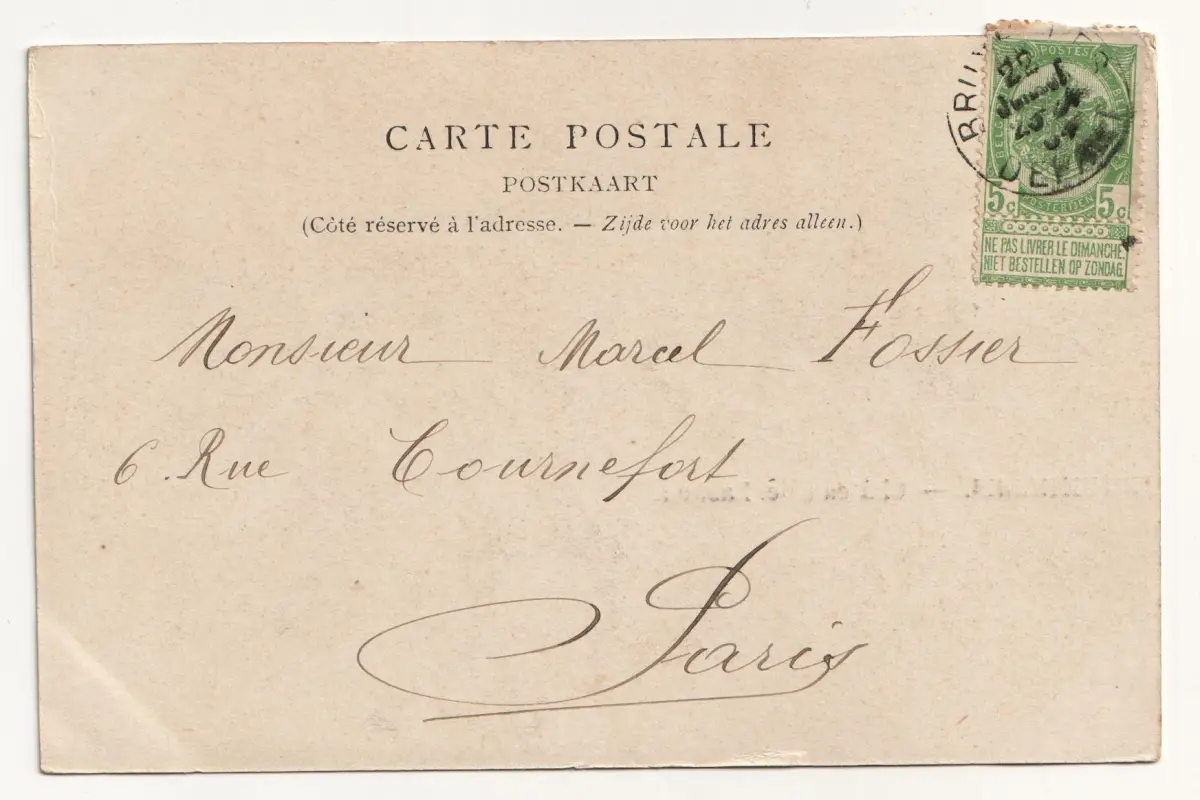 CARTE POSTALE
POSTKAART
(Côté réservé à l'adresse. — Zijde voor het adres alleen.)
POSTES
5c 5c
NE PAS LIVRER LE DIMANCHE.
NIET BESTELLEN OP ZONDAG.
22
DEPART
Monsieur Marcel Fossier
6. Rue Tournefort
Paris